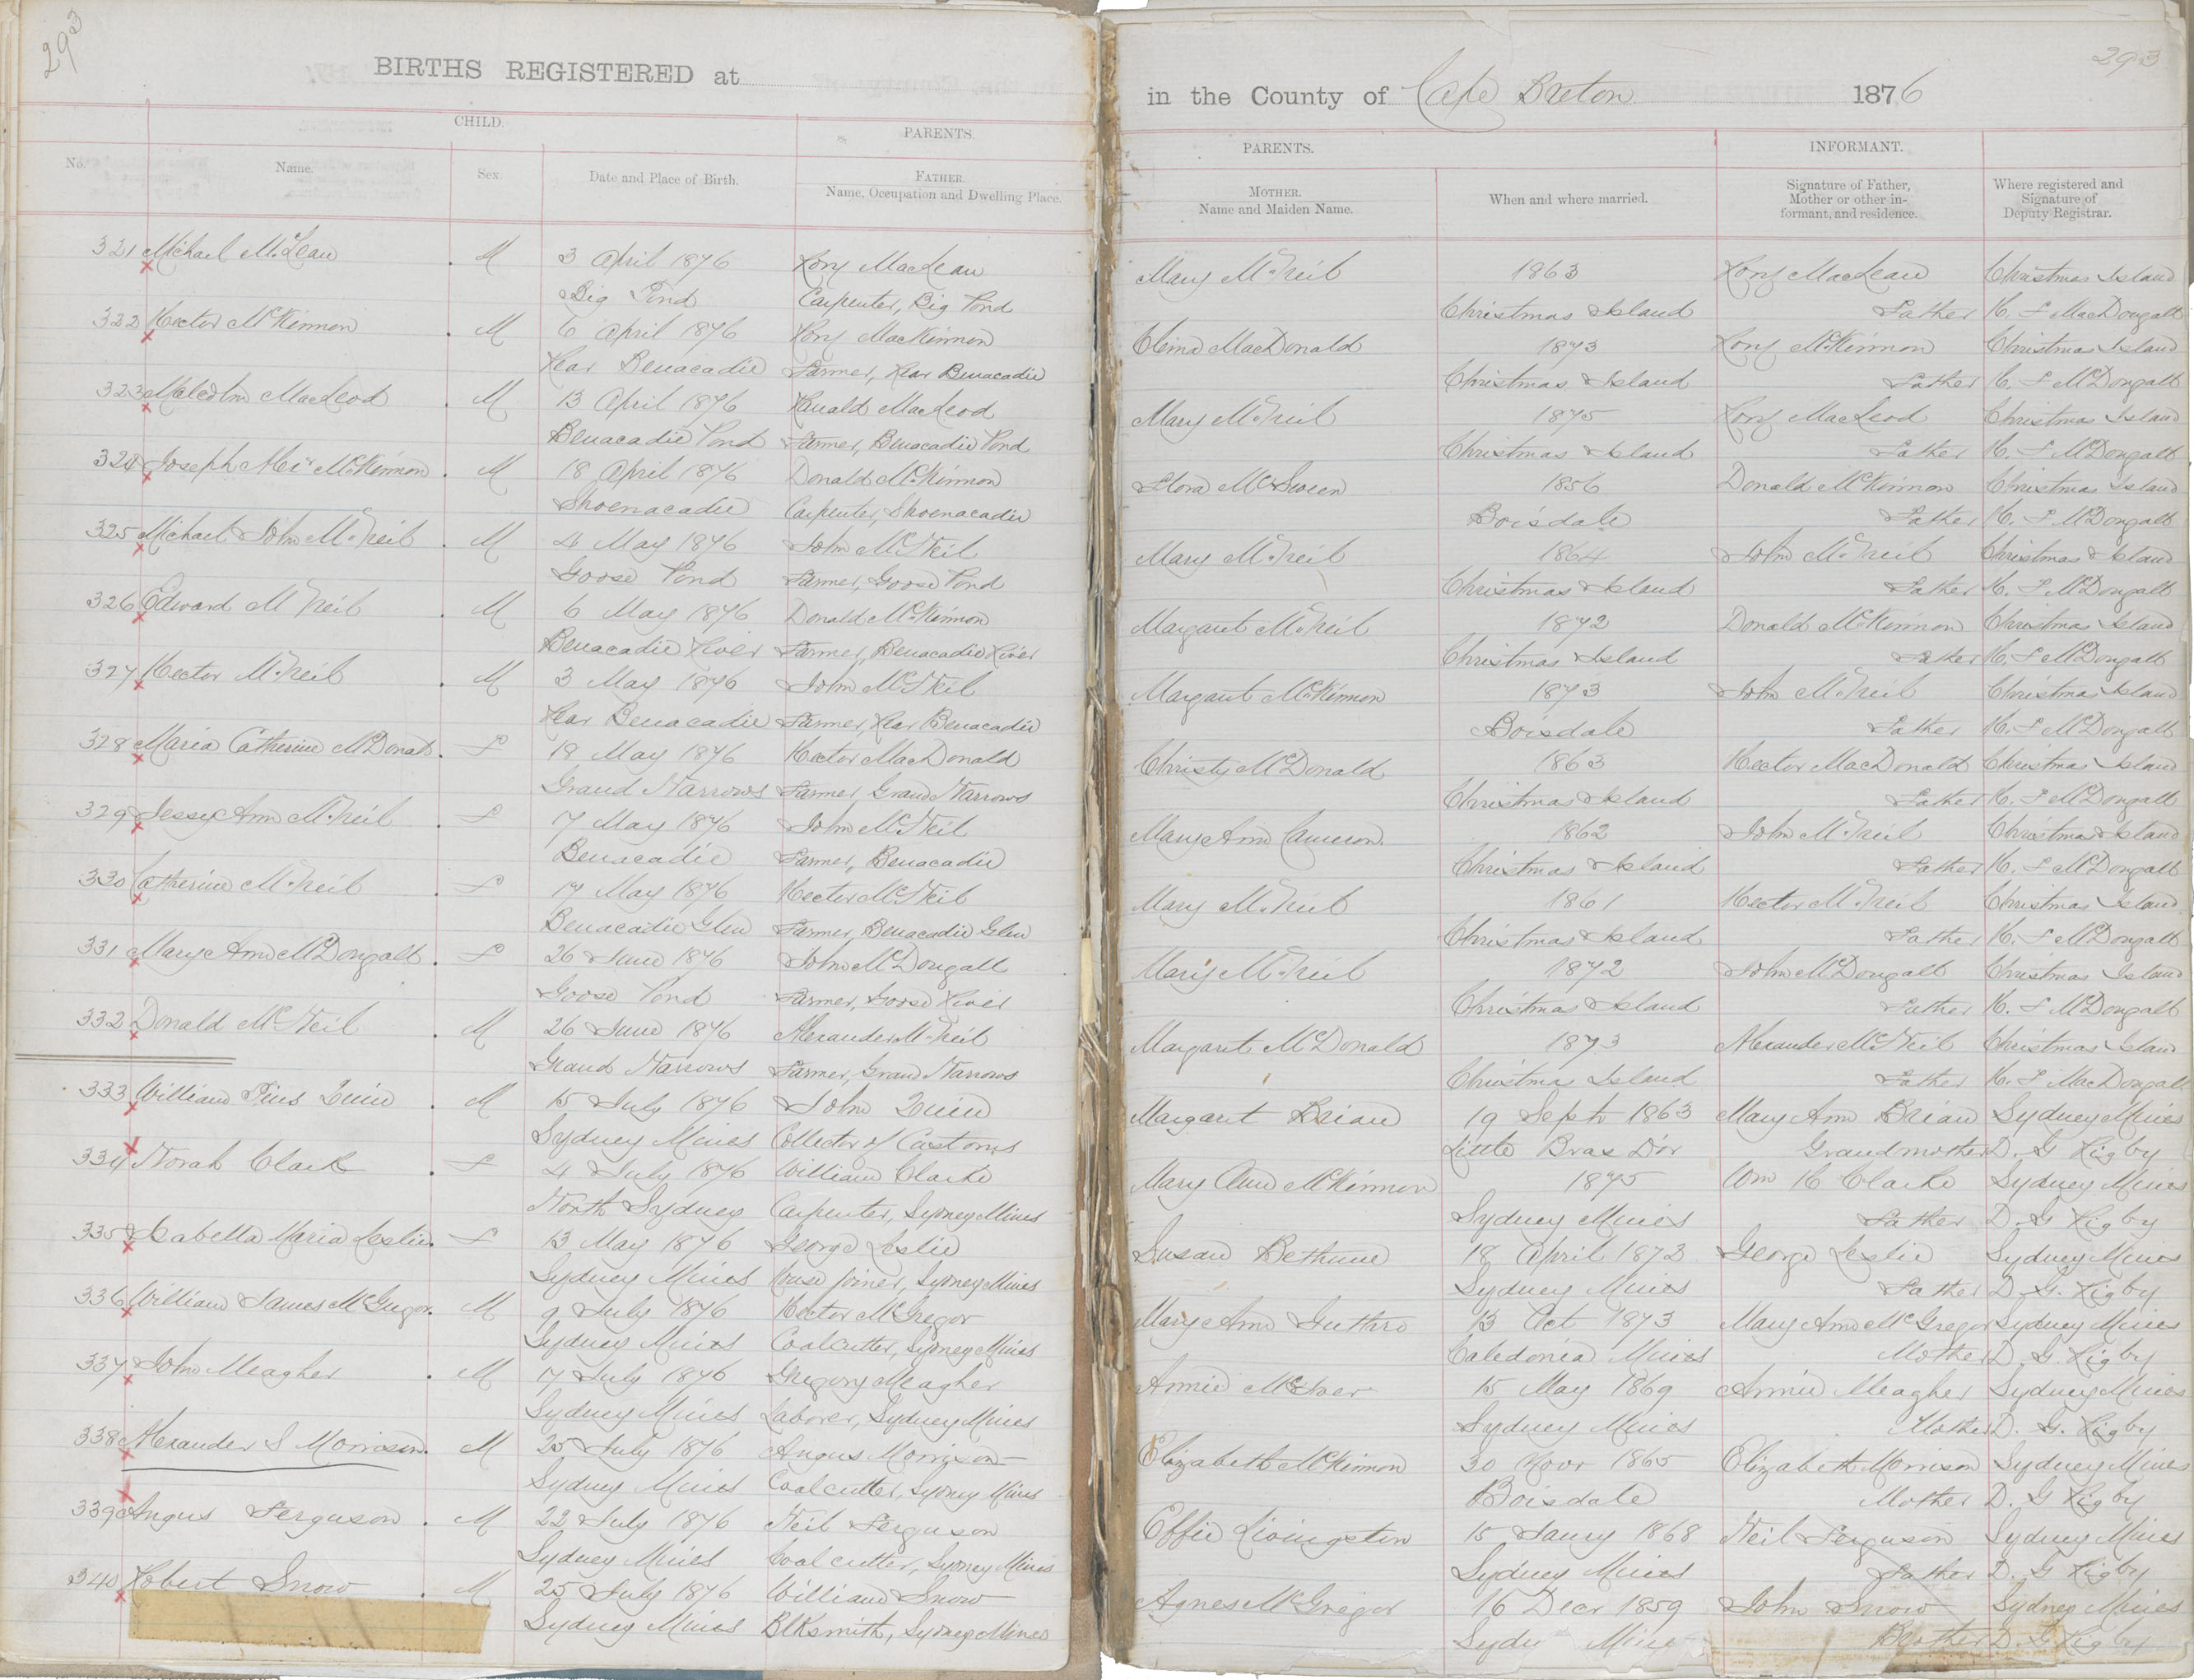 293
BIRTHS REGISTERED at
CHILD. PARENTS.
No. Name. Sex. Date and Place of Birth. FATHER. Name, Occupation and Dwelling Place.
321 Michael McLean M 3 April 1876 Rory MacLean
Big Pond Carpenter, Big Pond
322 Hector McKinnon M 6 April 1876 Rory MacKinnon
Rear Benacadie Farmer, Rear Benacadie
323 Malcolm MacLeod M 13 April 1876 Ranald MacLeod
Benacadie Pond Farmer, Benacadie Pond
324 Joseph Alexr McKinnon M 18 April 1876 Donald McKinnon
Shoenacadie Carpenter, Shoenacadie
325 Michael John McNeil M 4 May 1876 John McNeil
Goose Pond Farmer, Goose Pond
326 Edward McNeil M 6 May 1876 Donald McKinnon
Benacadie River Farmer, Benacadie River
327 Hector McNeil M 3 May 1876 John McNeil
Rear Benacadie Farmer, Rear Benacadie
328 Maria Catherine McDonald F 18 May 1876 Hector MacDonald
Grand Narrows Farmer, Grand Narrows
329 Jessey Ann McNeil F 7 May 1876 John McNeil
Benacadie Farmer, Benacadie
330 Catherine McNeil F 17 May 1876 Hector McNeil
Benacadie Glen Farmer, Benacadie Glen
331 Mary Ann McDongall F 26 June 1876 John McDougall
Goose Pond Farmer, Goose River
332 Donald McNeil M 26 June 1876 Alexander McNeil
Grand Narrows Farmer, Grand Narrows
333 William Pius Quin M 15 July 1876 John Quin
Sydney Mines Collector of Customs
334 Norah Clark F 4 July 1876 William Clarke
North Sydney Carpenter, Sydney Mines
335 Isabella Maria Leslie F 13 May 1876 George Leslie
Sydney Mines House Joiner, Sydney Mines
336 William James McGregor M 9 July 1876 Hector McGregor
Sydney Mines Coalcutter, Sydney Mines
337 John Meagher M 17 July 1876 Gregory Meagher
Sydney Mines Laborer, Sydney Mines
338 Alexander S Morrison M 25 July 1876 Angus Morrison
Sydney Mines Coalcutter, Sydney Mines
339 Angus Ferguson M 22 July 1876 Neil Ferguson
Sydney Mines Coal cutter, Sydney Mines
340 Robert Snow M 25 July 1876 William Snow
Sydney Mines Blksmith, Sydney Mines
293
in the County of Cape Breton 1876
PARENTS. INFORMANT.
MOTHER. Name and Maiden Name. When and where married. Signature of Father, Mother or other informant, and residence. Where registered and Signature of Deputy Registrar.
Mary McNeil 1863 Rory MacLean Christmas Island
Christmas Island Father H. F MacDougall
MacDonald 1873 Rory McKinnon Christmas Island
Christmas Island Father H. F McDougall
Mary McNeil 1875 Rory MacLeod Christmas Island
Christmas Island Father H. F McDougall
Flora McSween 1856 Donald McKinnon Christmas Island
Boisdale Father H. F McDougall
Mary McNeil 1864 John McNeil Christmas Island
Christmas Island Father H. F McDougall
Margaret McNeil 1872 Donald McKinnon Christmas Island
Christmas Island Father H. F McDougall
Margaret McKinnon 1873 John McNeil Christmas Island
Boisdale Father H. F McDougall
Christy McDonald 1863 Hector MacDonald Christmas Island
Christmas Island Father H. F McDougall
Mary Ann Cameron 1862 John McNeil Christmas Island
Christmas Island Father H. F McDougall
Mary McNeil 1861 Hector McNeil Christmas Island
Christmas Island Father H. F McDougall
Mary McNeil 1872 John McDougall Christmas Island
Christmas Island Father H. F McDougall
Margaret McDonald 1873 Alexander McNeil Christmas Island
Christmas Island Father H. F MacDougall
Margaret Brian 19 Sept 1863 Mary Ann Brian Sydney Mines
Little Bras D'or Grandmother D. G Rigby
Mary Ann McKinnon 1875 Wm H Clarke Sydney Mines
Sydney Mines Father D. G Rigby
Susan Bethune 18 April 1873 George Leslie Sydney Mines
Sydney Mines Father D. G. Rigby
Mary Ann Guthro 13 Oct 1873 Mary Ann McGregor Sydney Mines
Caledonia Mines Mother D. G. Rigby
Annie McIver 15 May 1869 Annie Meagher Sydney Mines
Sydney Mines Mother D. G. Rigby
Elizabeth McKinnon 30 Novr 1865 Elizabeth Morrison Sydney Mines
Boisdale Mother D. G Rigby
Effie Livingston 15 Jany 1868 Neil Ferguson Sydney Mines
Sydney Mines Father D. G Rigby
Agnes McGregor 16 Decr 1859 John Snow Sydney Mines
Brother D. G Rigby